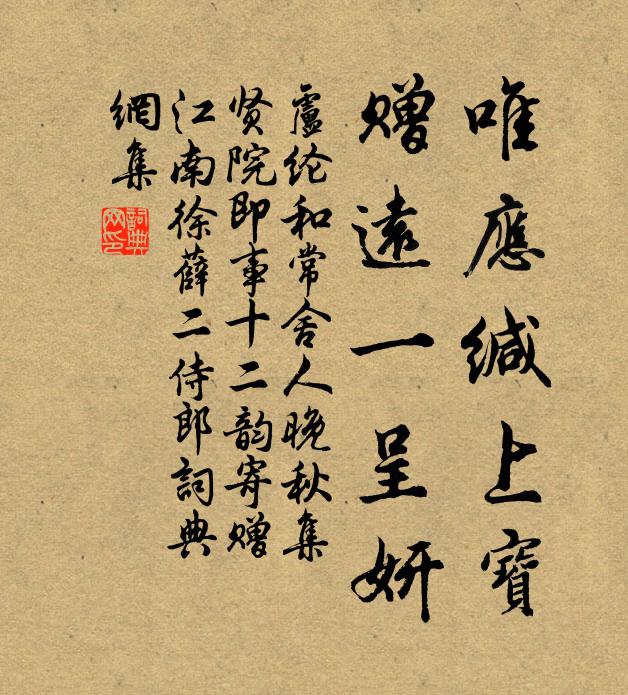 唯應緘上寶
赠遠一呈妍
盧纶和常舍人晚秋集
贤院即事十二韵寄赠
江南徐薛二侍郎詞典
網集
詞典網印